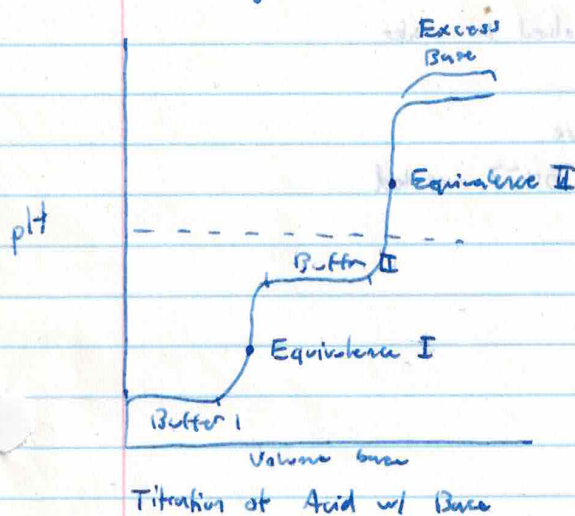 Excess
Base
Equivalence II
pH
Buffer II
Equivalence I
Buffer 1
Volume base
Titration of Acid w/ Base